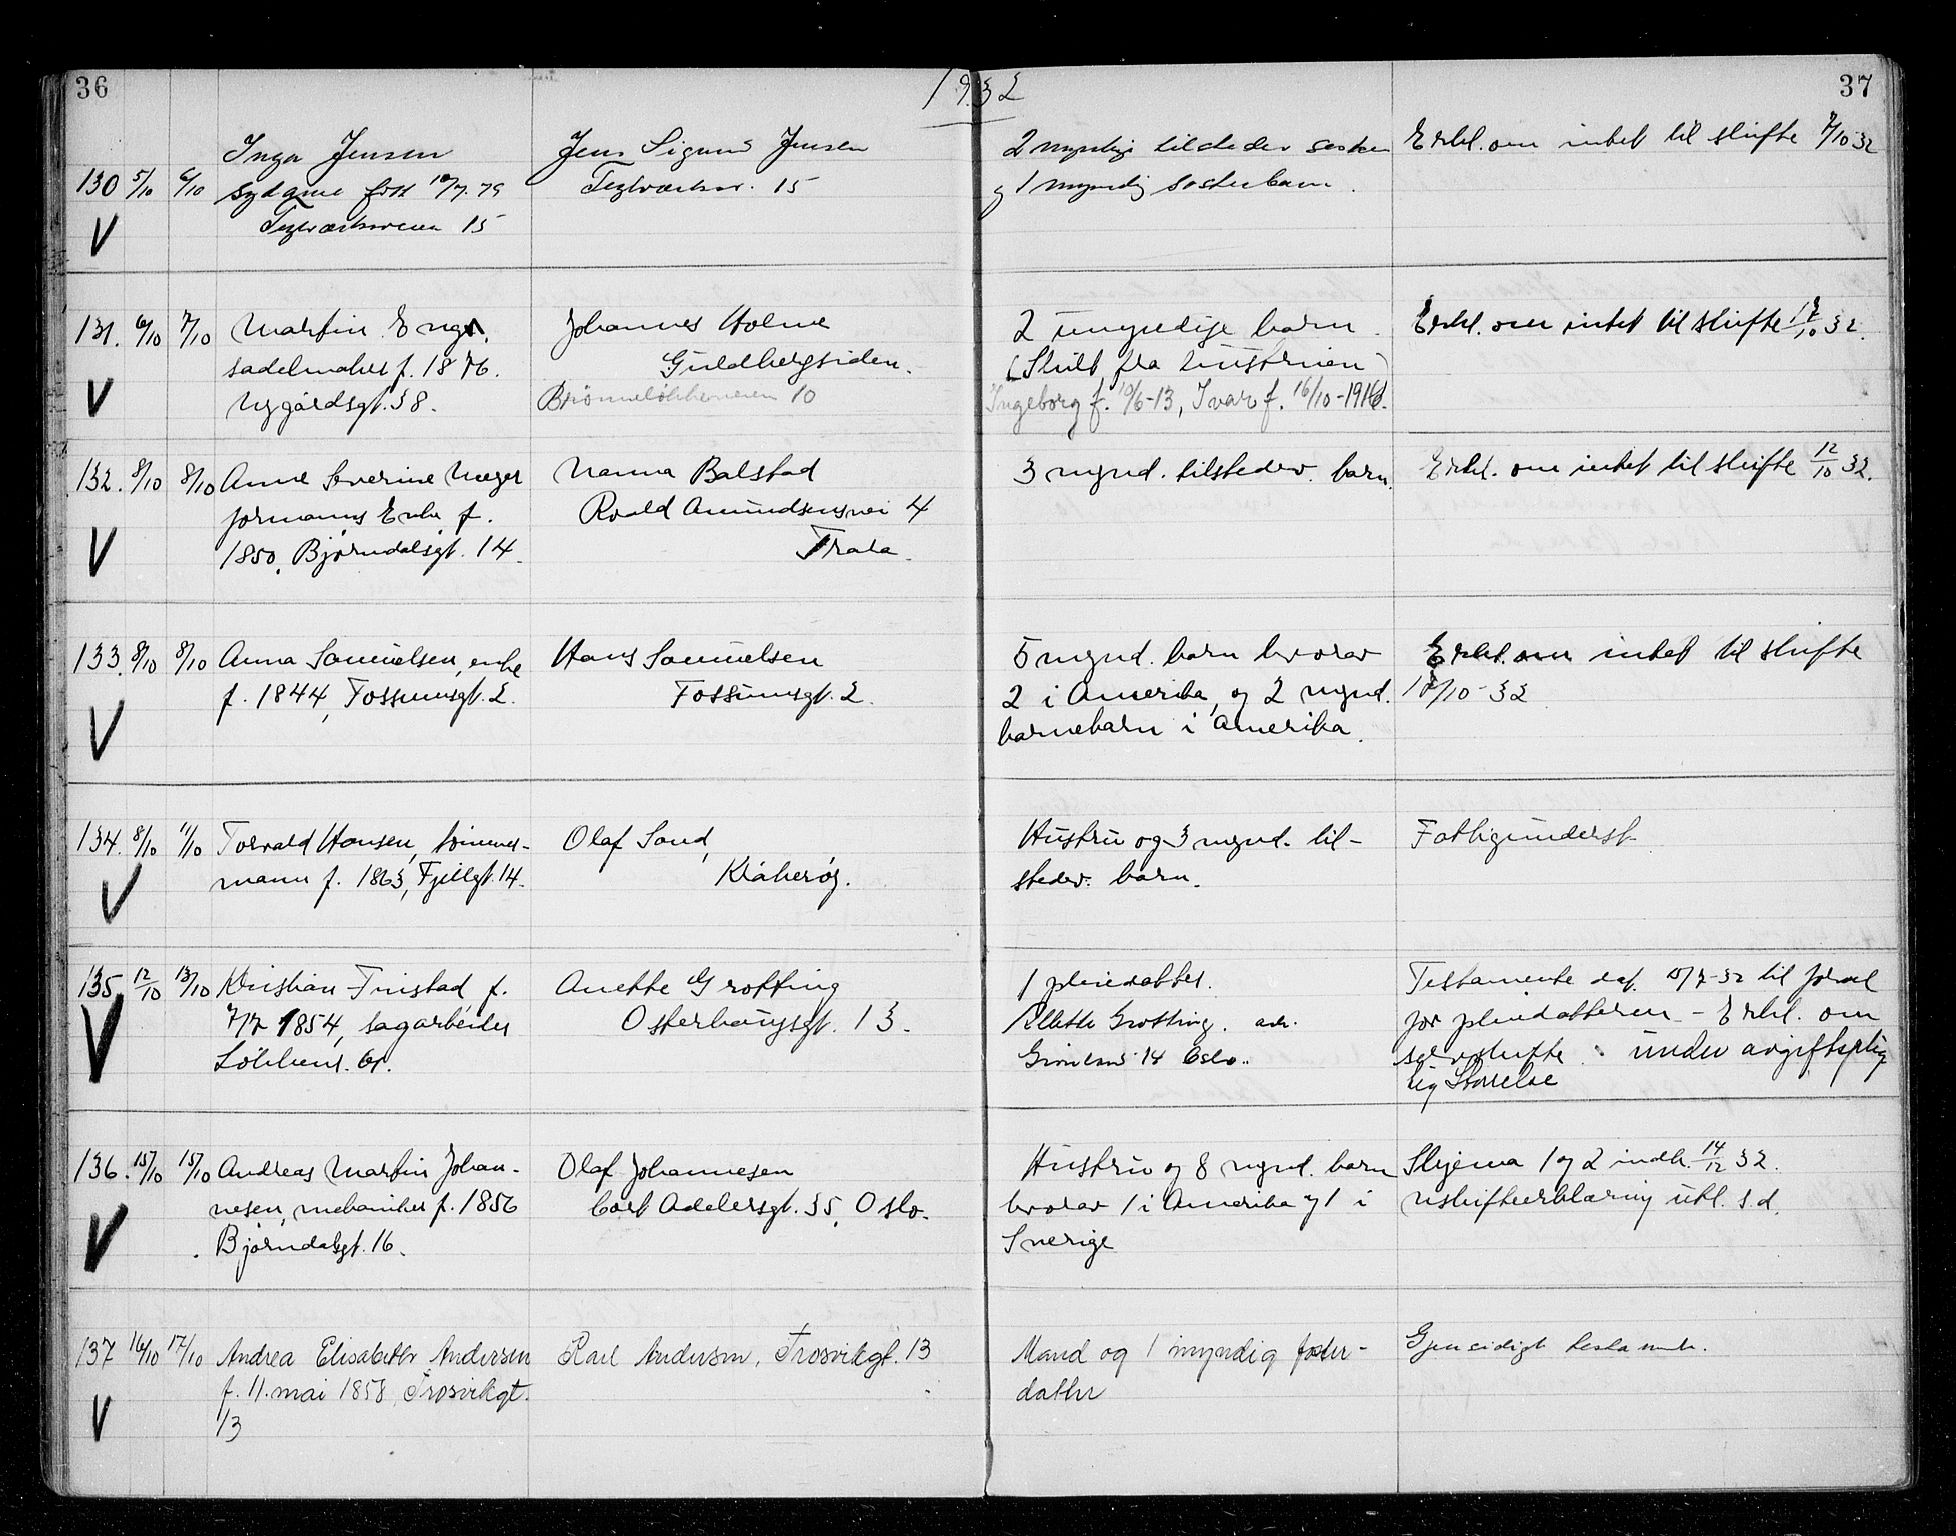 36
1932
37
130 5/10 6/10 Inga Jensen
sydame født 10/7.79
Teglverksveien 15
Jens Sigurd Jensen
Teglverksv. 15
2 myndige tilstedev søsken
og 1 myndig søsterbarn.
Erkl. om intet til skifte 7/10 32
V
131. 6/10 7/10 Martin Enger,
sadelmaker f. 1876.
Nygårdsgt. 38.
Johannes Holme
Guldbergsiden.
Brønneløkkeveien 10
2 umyndige barn.
(Skilt fra hustruen)
Ingeborg f. 10/6-13, Ivar f. 16/10-1916.
Erkl. om intet til skifte 12/10 32.
V
132. 8/10 8/10 Anne Severine Unger
formanns Enke f.
1850. Bjørndalsgt. 14.
Nanna Balstad
Roald Amundsensvei 4
Trara.
3 mynd. tilstedev. barn.
Erkl. om intet til skifte 12/10 32.
V
133. 8/10 8/10 Anna Samuelsen, enke
f. 1844, Fossumsgt. 2.
Hans Samuelsen
Fossumsgt. 2.
5 mynd. barn hvorav
2 i Amerika, og 2 mynd.
barnebarn i Amerika.
Erkl. om intet til skifte
/10-32
V
134. 8/10 11/10 Torvald Hansen, tømmer-
mann f. 1863, Fjellgt. 14.
Olaf Sand,
Kråkerøy.
Hustru og 3 mynd. til-
stedev. barn.
Fattigunderst.
V
135 12/10 13/10 Kristian Finstad, f.
7/7 1854, sagarbeider
Løkkens
Anette Grotting
Osterhaugsgt. 13.
1 pleiedatter.
Grotting. adr.
Grønland 14 Oslo.
Testamente daf. /7-32 til fordel
for pleiedatteren - Erkl. om
selvskifte. under avgiftsplig
tig Størrelse
V
136. 15/10 15/10 Andreas Martin Johan-
nesen, mekaniker f. 1856
Bjørndalsgt. 16.
Olaf Johannesen
Cort Adelersgt. 35, Oslo.
Hustru og 8 mynd. barn
hvorav 1 i Amerika og 1 i
Sverige
Skjema 1 og 2 indk. 14/12 32.
uskifteerklæring utl. s.d.
V
137 16/10 17/10 Andrea Elisabeth Andersen
f. 11. mai 1858, Trosvikgt.
13
Karl Andersen, Trosvikgt. 13
Mand og 1 myndig foster-
datter
Gjensidigt testamente.
V